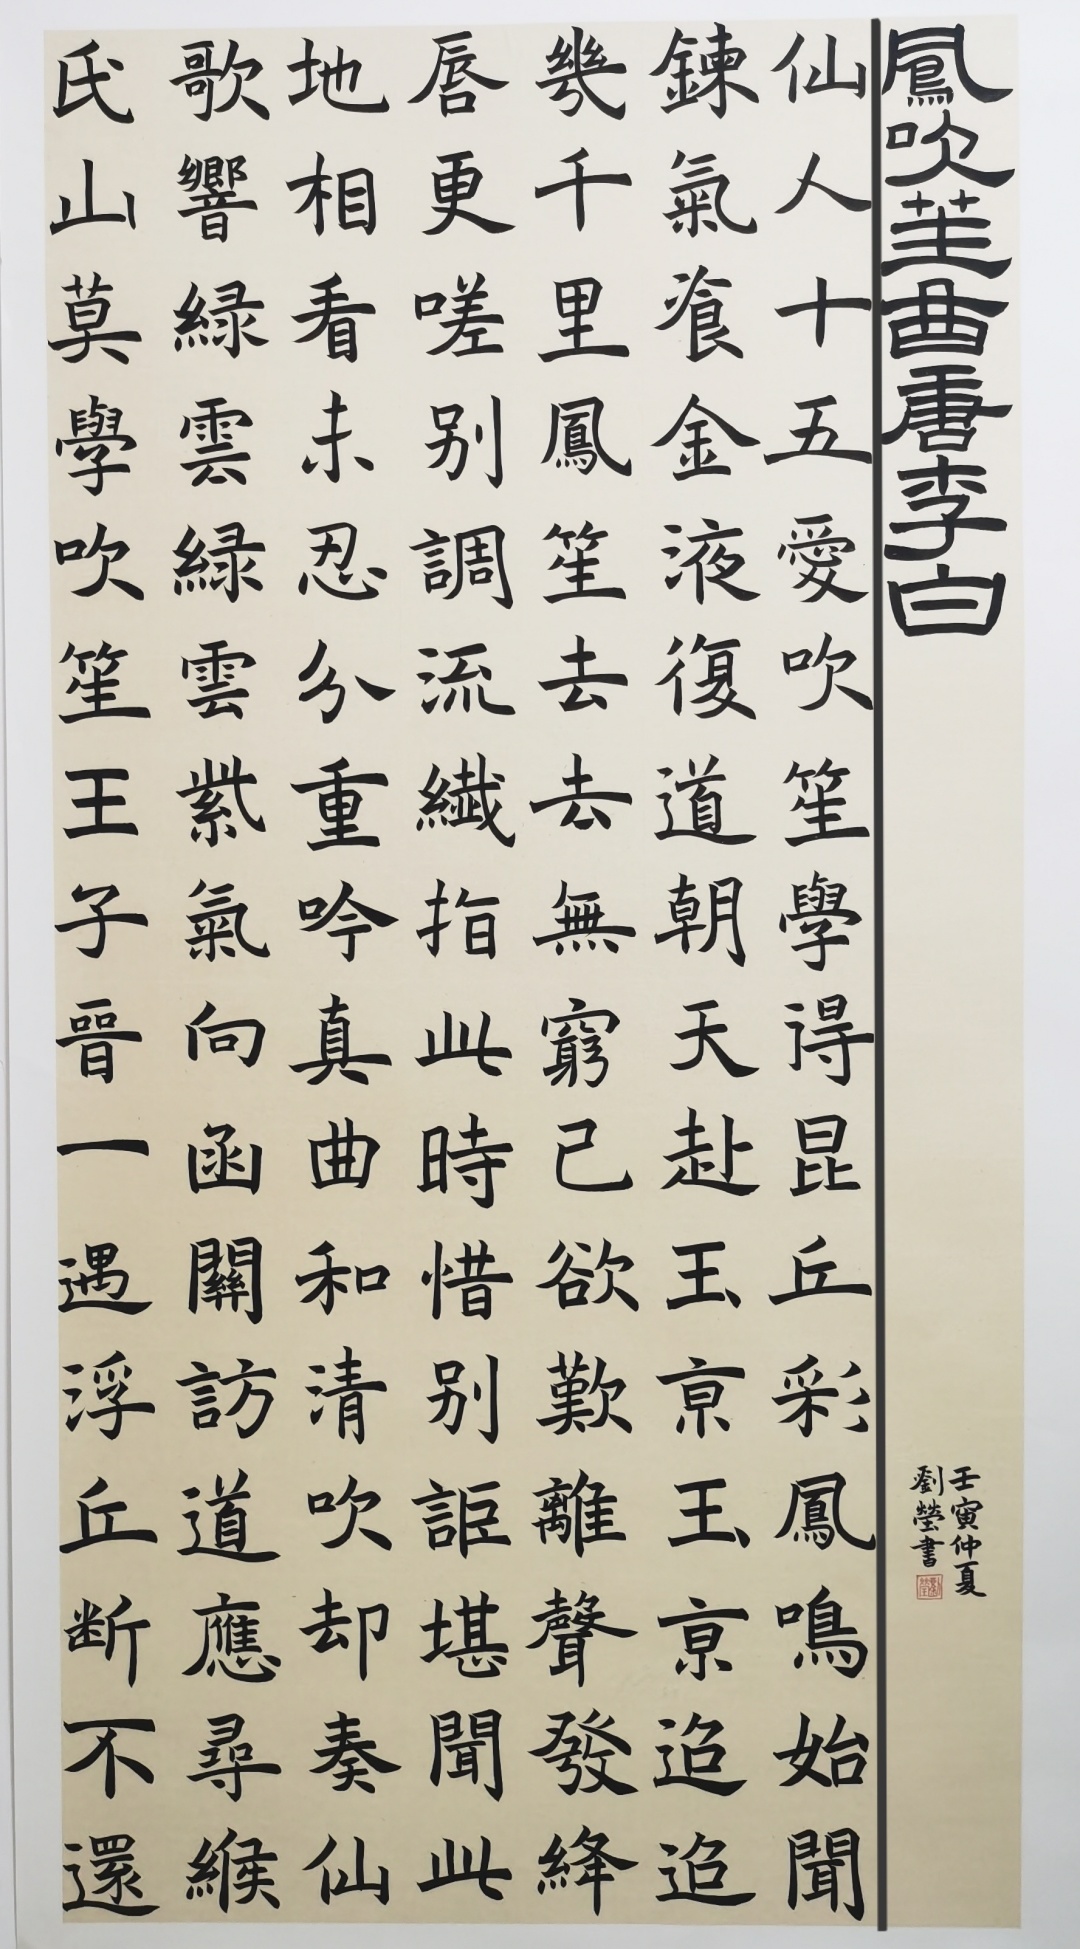 鳳吹笙曲唐李白
仙人十五愛吹笙學得昆丘彩鳳鳴始聞
鍊氣飡金液復道朝天赴玉京玉京迢迢
幾千里鳳笙去去無窮已欲歎離聲發絳
唇更嗟别調流纖指此時惜别詎堪聞此
地相看未忍分重吟真曲和清吹却奏仙
歌響緑雲緑雲紫氣向函關訪道應尋緱
氏山莫學吹笙王子晉一遇浮丘断不還
壬寅仲夏
劉瑩書